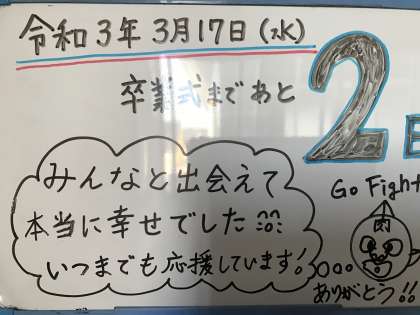 令和3年 3月17日(水)
卒業式まで あと
2日
みんなと出会えて
本当に幸せでした
いつまでも応援しています!
Go Fight
ありがとう!!